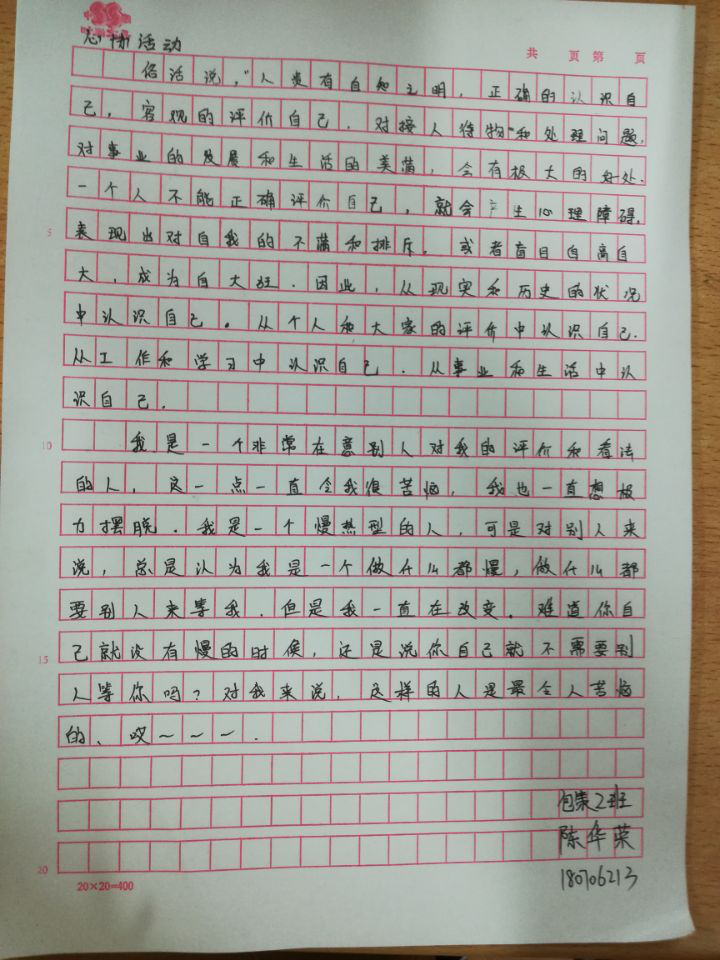 心协活动
共 页 第 页
俗话说，"人贵有自知之明，正确的认识自
己，客观的评价自己，对接人待物"和处理问题，
对事业的发展和生活的美满，会有极大的好处．
一个人不能正确评价自己，就会产生心理障碍，
5 表现出对自我的不满和排斥。或者盲目自高自
大，成为自大狂．因此，从现实和历史的状况
中认识自己。从个人和大家的评价中认识自己．
从工作和学习中认识自己．从事业和生活中认
识自己．
10 我是一个非常在意别人对我的评价和看法
的人，这一点一直令我很苦恼，我也一直想极
力摆脱．我是一个慢热型的人，可是对别人来
说，总是认为我是一个做什么都慢，做什么都
要别人来等我．但是我一直在改变．难道你自
15 己就没有慢的时候，还是说你自己就不需要别
人等你吗？对我来说，这样的人是最令人苦恼
的、哎～～～．
包策2班
陈华荣
20 180706213
20×20=400